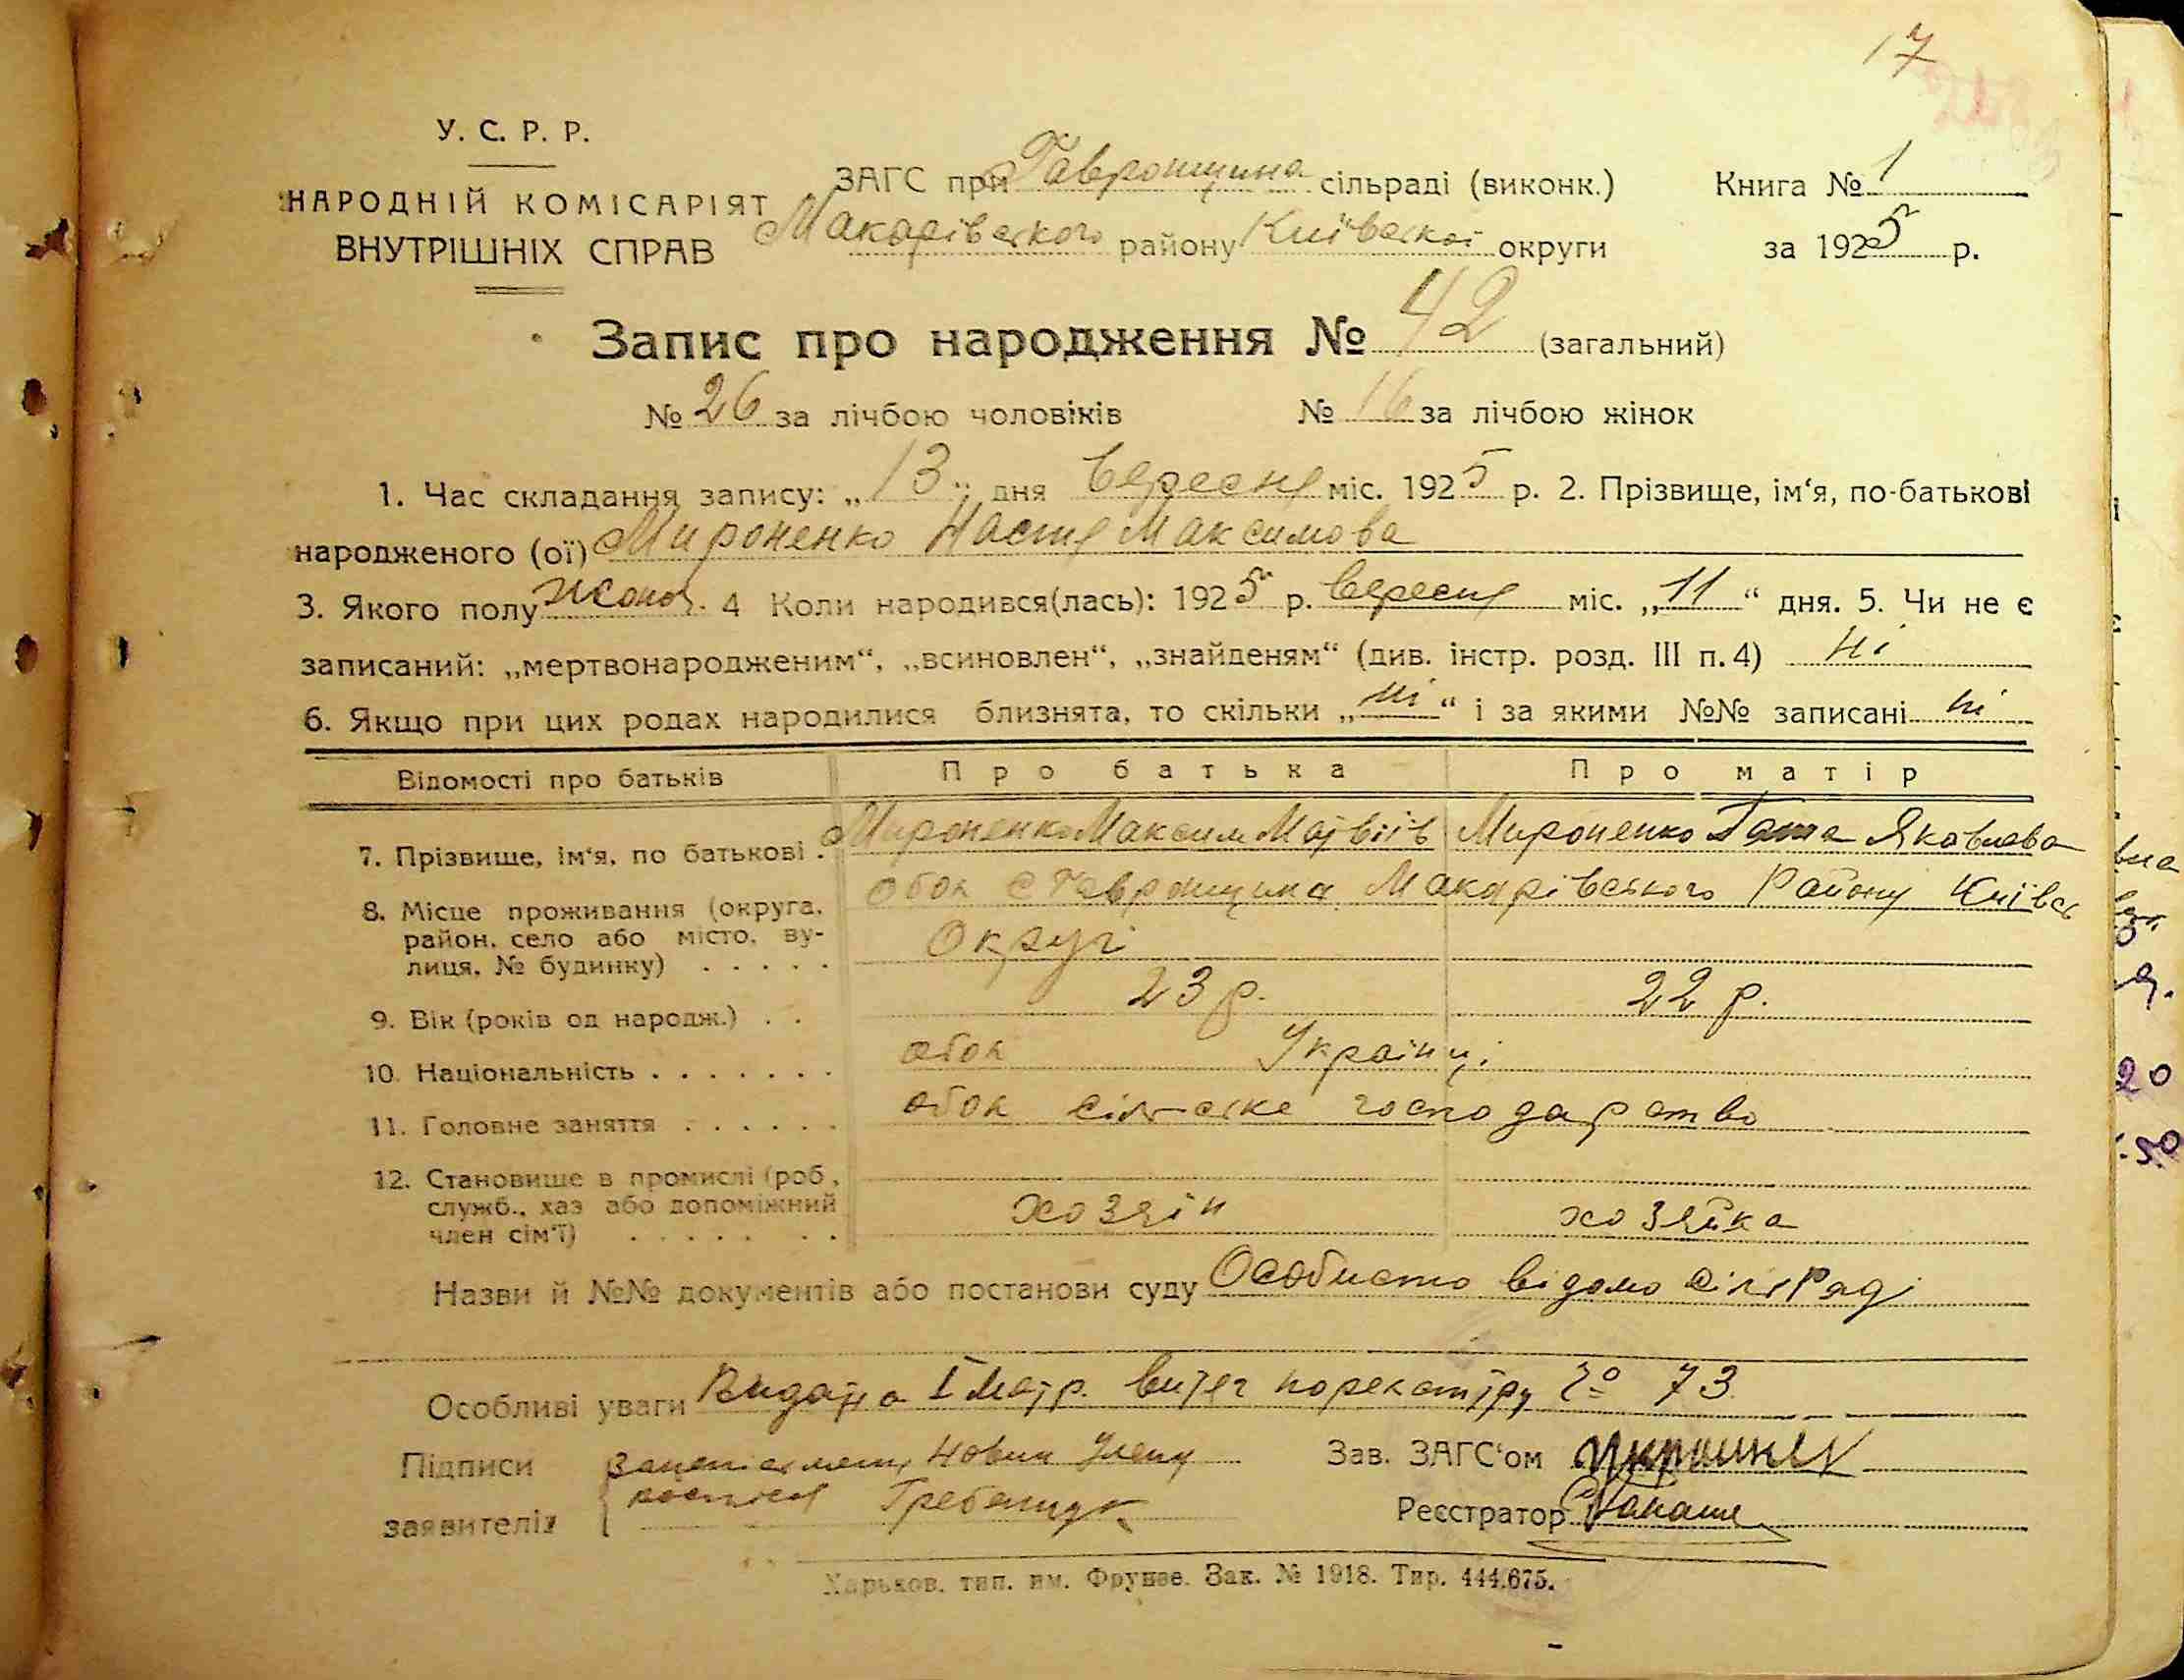 17
У. С. Р. Р.
НАРОДНІЙ КОМІСАРІЯТ
ВНУТРІШНІХ СПРАВ
ЗАГС при Гавронщина сільраді (виконк.)
Макарівского району Київскої округи
Книга № 1
за 1925 р.
Запис про народження № 42 (загальний)
№ 26 за лічбою чоловіків № 16 за лічбою жінок
1. Час складання запису: „13„ дня Вересня міс. 1925 р. 2. Прізвище, ім‘я, по-батькові
народженого (ої) Мироненко Настя Максимова
3. Якого полу жоноч. 4 Коли народився(лась): 1925 р. Вересня міс. „11“ дня. 5. Чи не є
записаний: „мертвонародженим“, „всиновлен“, „знайденям“ (див. інстр. розд. III п. 4) Ні
6. Якщо при цих родах народилися близнята, то скільки „ні“ і за якими №№ записані ні
Відомості про батьків Про батька Про матір
7. Прізвище, ім‘я, по батькові . Мироненко Максим Матвіїв Мироненко Ганна Яковлева
8. Місце проживання (округа, обоє с Гавронщина Макарівського Району Київсь
район, село або місто, ву- Округі
лиця, № будинку) . . . . .
9. Вік (років од народж.) . . 23 р. 22 р.
10. Національність . . . . . . . обоє Українці
11. Головне заняття . . . . . . обоє сільське господарство
12. Становище в промислі (роб.,
служб., хаз або допоміжний хозяїн хозяйка
член сім‘ї) . . . . . . .
Назви й №№ документів або постанови суду Особисто відомо сільРаді
Особливі уваги Видано І Матр. витяг по 73
Підписи
заявителів
Гребенюк
Зав. ЗАГС‘ом
Реєстратор
Харьков. тип. им. Фрунзе. Зак. № 1918. Тир. 444.675.